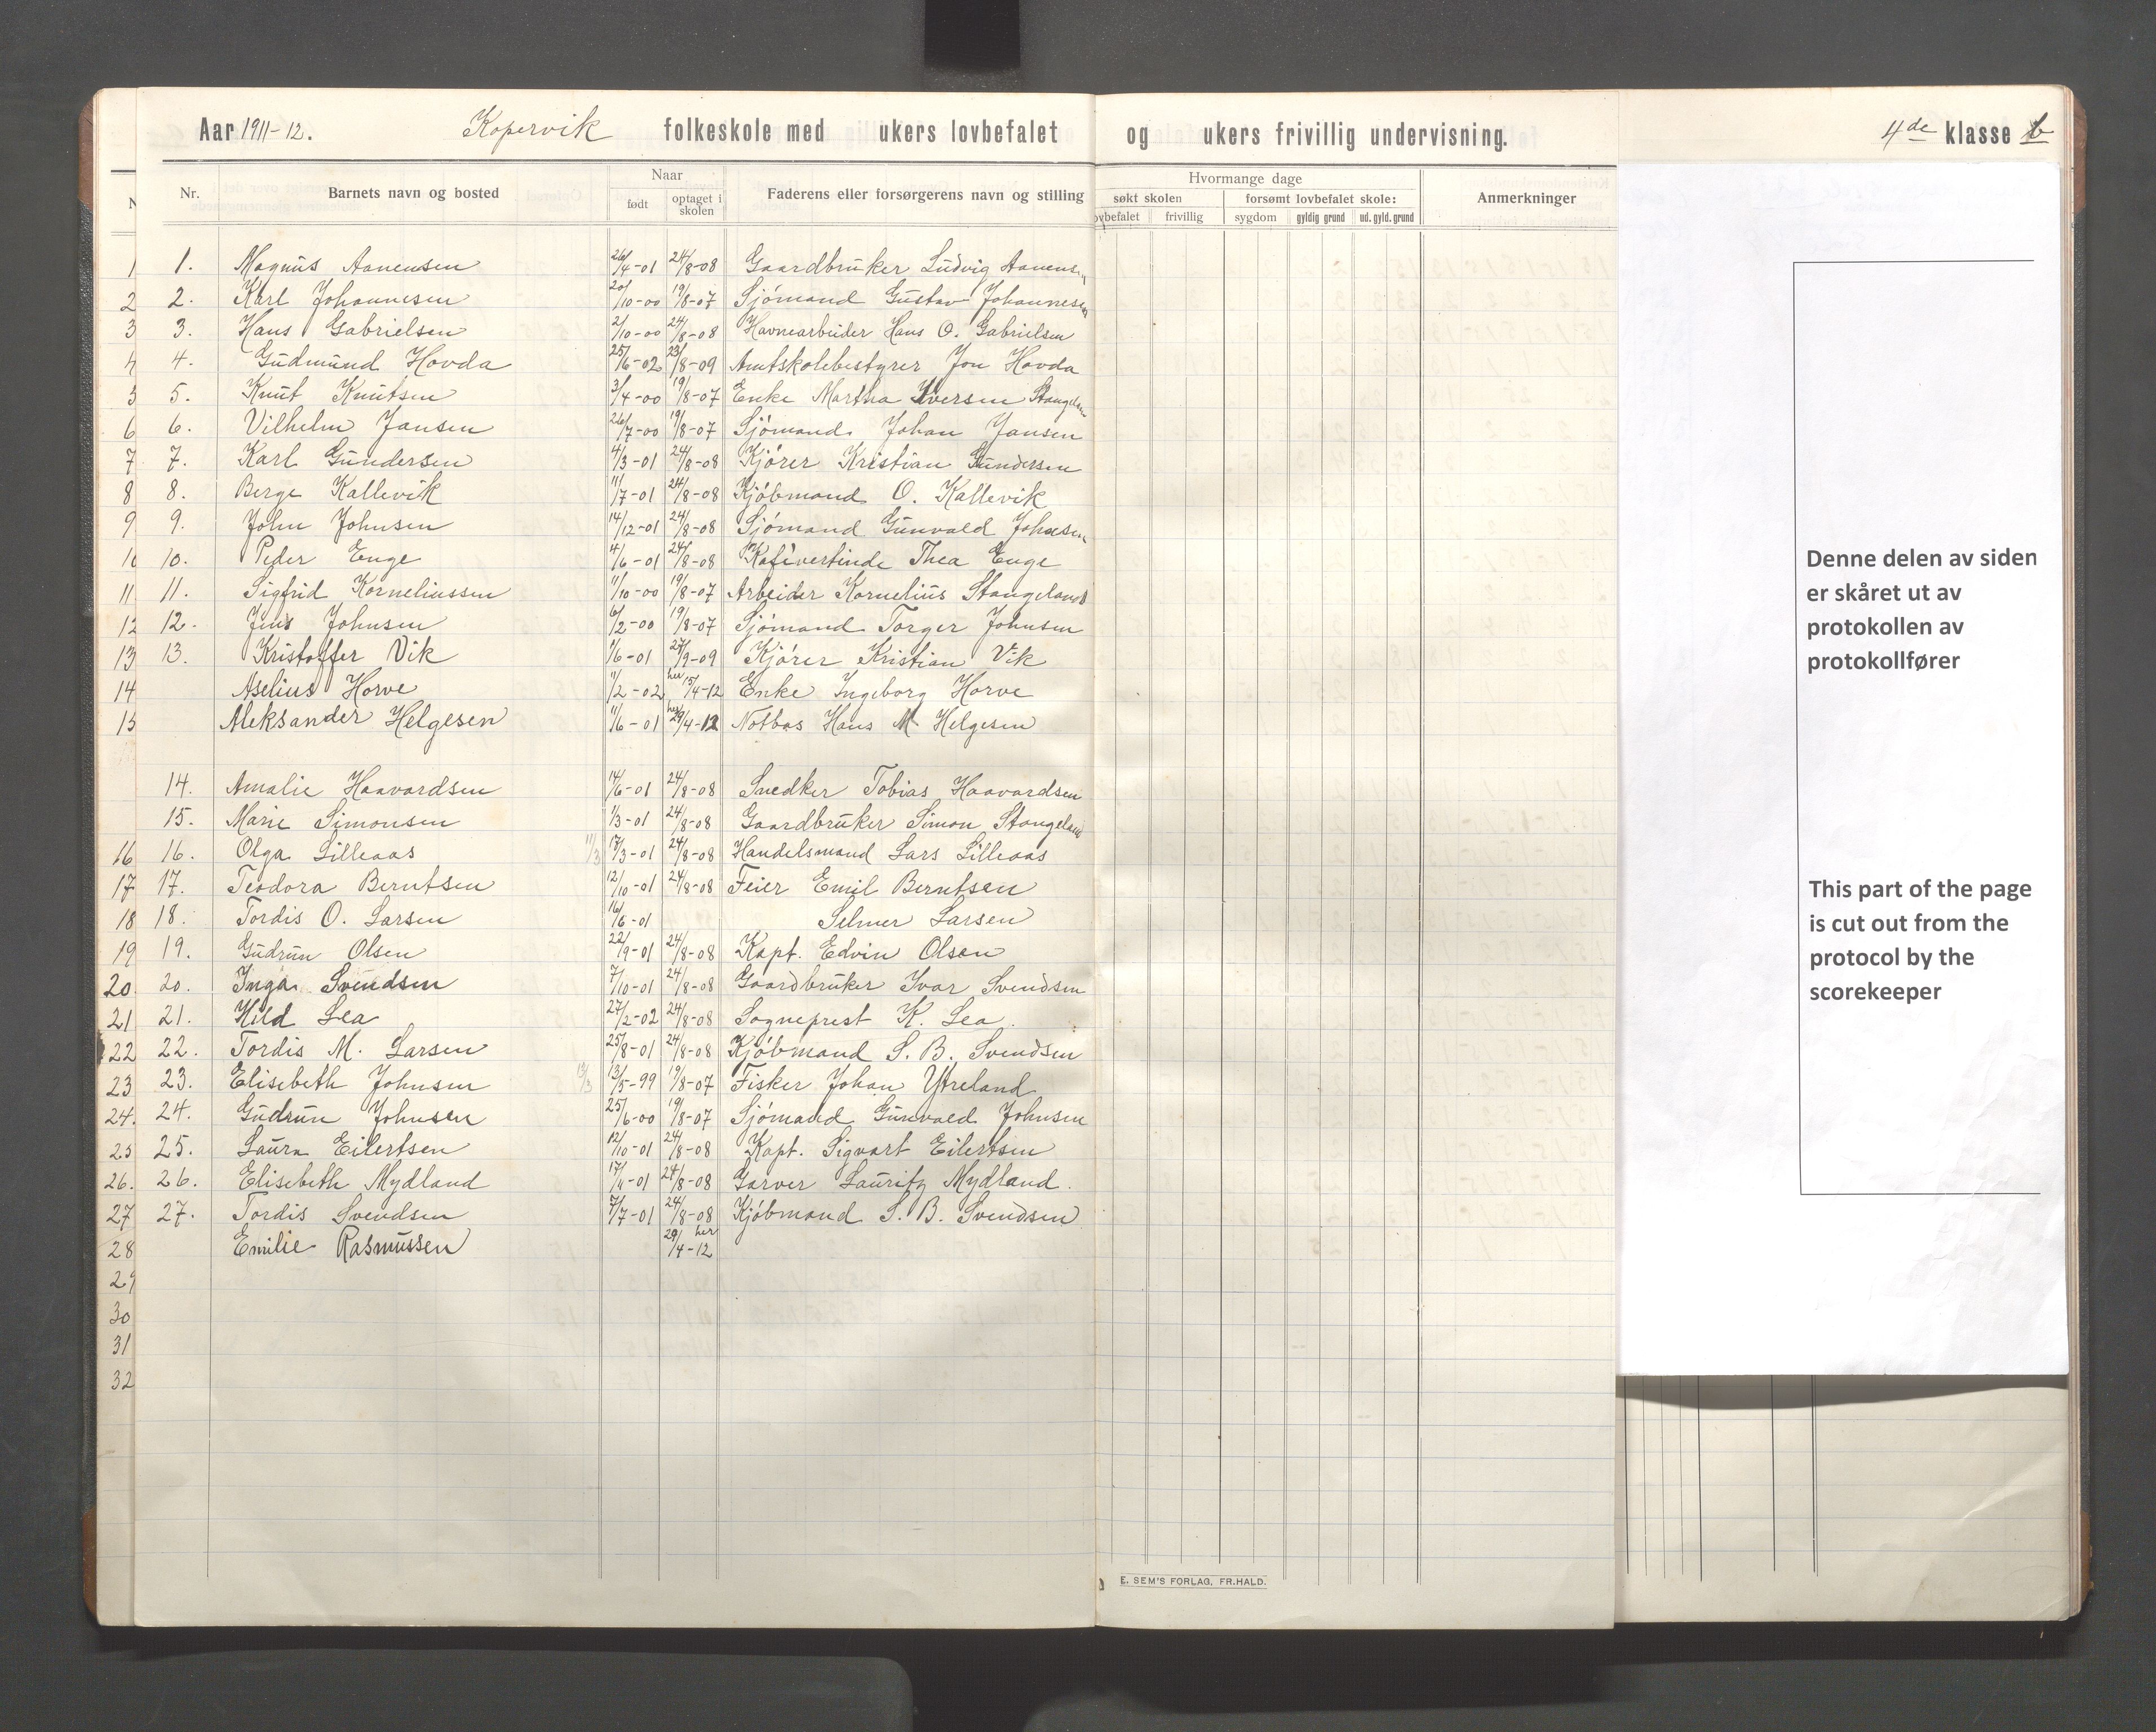 Aar 1911-12. Kopervik folkeskole med ukers lovbefalet og ukers frivillig undervisning. 4de klasse b
Nr. Barnets navn og bosted Naar født optaget i skolen Faderens eller forsørgerens navn og stilling Hvormange dage søkt skolen lovbefalet frivillig forsømt lovbefalet skole: sygdom gyldig grund ud. gyld. grund Anmerkninger
1 1. Magnus Aanensen 26/4-01 24/8-08 Gaardbruker Ludvig Aanensen
2 2. Karl Johannesen 20/10-00 19/8-07 Sjömand Gustav Johannesen
3 3. Hans Gabrielsen 2/10-00 24/8-08 Havnearbeider Hans O. Gabrielsen
4 4. Gudmund Hovda 25/6-02 23/8-09 Amtskolebestyrer Jon Hovda
5 5. Knut Knutsen 3/4-00 19/8-07 Enke Martha Iversen Stangeland
6 6. Vilhelm Jansen 26/7-00 19/8-07 Sjömand Johan Jansen
7 7. Karl Gundersen 4/3-01 24/8-08 Kjörer Kristian Gundersen
8 8. Berge Kallevik 11/7-01 24/8-08 Kjöbmand O. Kallevik
9 9. John Johnsen 14/12-01 24/8-08 Sjömand Gunvald Johnsen
10 10. Peder Enge 4/6-01 24/8-08 Kafévertinde Thea Enge
11 11. Sigfrid Korneliussen 11/10-00 19/8-07 Arbeider Kornelius Stangeland
12 12. Jens Johnsen 6/2-00 19/8-07 Sjömand Torger Johnsen
13 13. Kristoffer Vik 1/6-01 27/9-09 Kjörer Kristian Vik
14 Aselius Horve 11/2-02 her 15/4-12 Enke Ingeborg Horve
15 Aleksander Helgesen 11/6-01 her 29/4-12 Notbas Hans M Helgesen
14. Amalie Haavardsen 14/6-01 24/8-08 Snedker Tobias Haavardsen
15. Marie Simonsen 1/3-01 24/8-08 Gaardbruker Simon Stangeland
16 16. Olga Lilleaas 11/3 17/3-01 24/8-08 Handelsmand Lars Lilleaas
17 17. Teodora Berntsen 12/10-01 24/8-08 Feier Emil Berntsen
18 18. Tordis O. Larsen 16/6-01 Selmer Larsen
19 19. Gudrun Olsen 22/9-01 24/8-08 Kapt. Edvin Olsen
20. 20. Inga Svendsen 7/10-01 24/8-08 Gaardbruker Ivar Svendsen
21 21. Hild Lea 27/2-02 24/8-08 Sogneprest K. Lea.
22 22. Tordis M. Larsen 25/8-01 24/8-08 Kjöbmand S. B. Svendsen
23 23. Elisebeth Johnsen 13/3 13/5-99 19/8-07 Fisker Johan Ytreland
24. 24. Gudrun Johnsen 25/6-00 19/8-07 Sjömand Gunvald Johnsen
25 25. Laura Eilertsen 12/10-01 24/8-08 Kapt. Sigvart Eilertsen
26. 26. Elisebeth Mydland 17/4-01 24/8-08 Garver Lauritz Mydland.
27 27. Tordis Svendsen 7/7-01 24/8-08 Kjöbmand S. B. Svendsen
28 Emilie Rasmussen 29/4-12 her
29
30
31
32
E. SEM'S FORLAG, FR.HALD.
Denne delen av siden
er skåret ut av
protokollen av
protokollfører
This part of the page
is cut out from the
protocol by the
scorekeeper